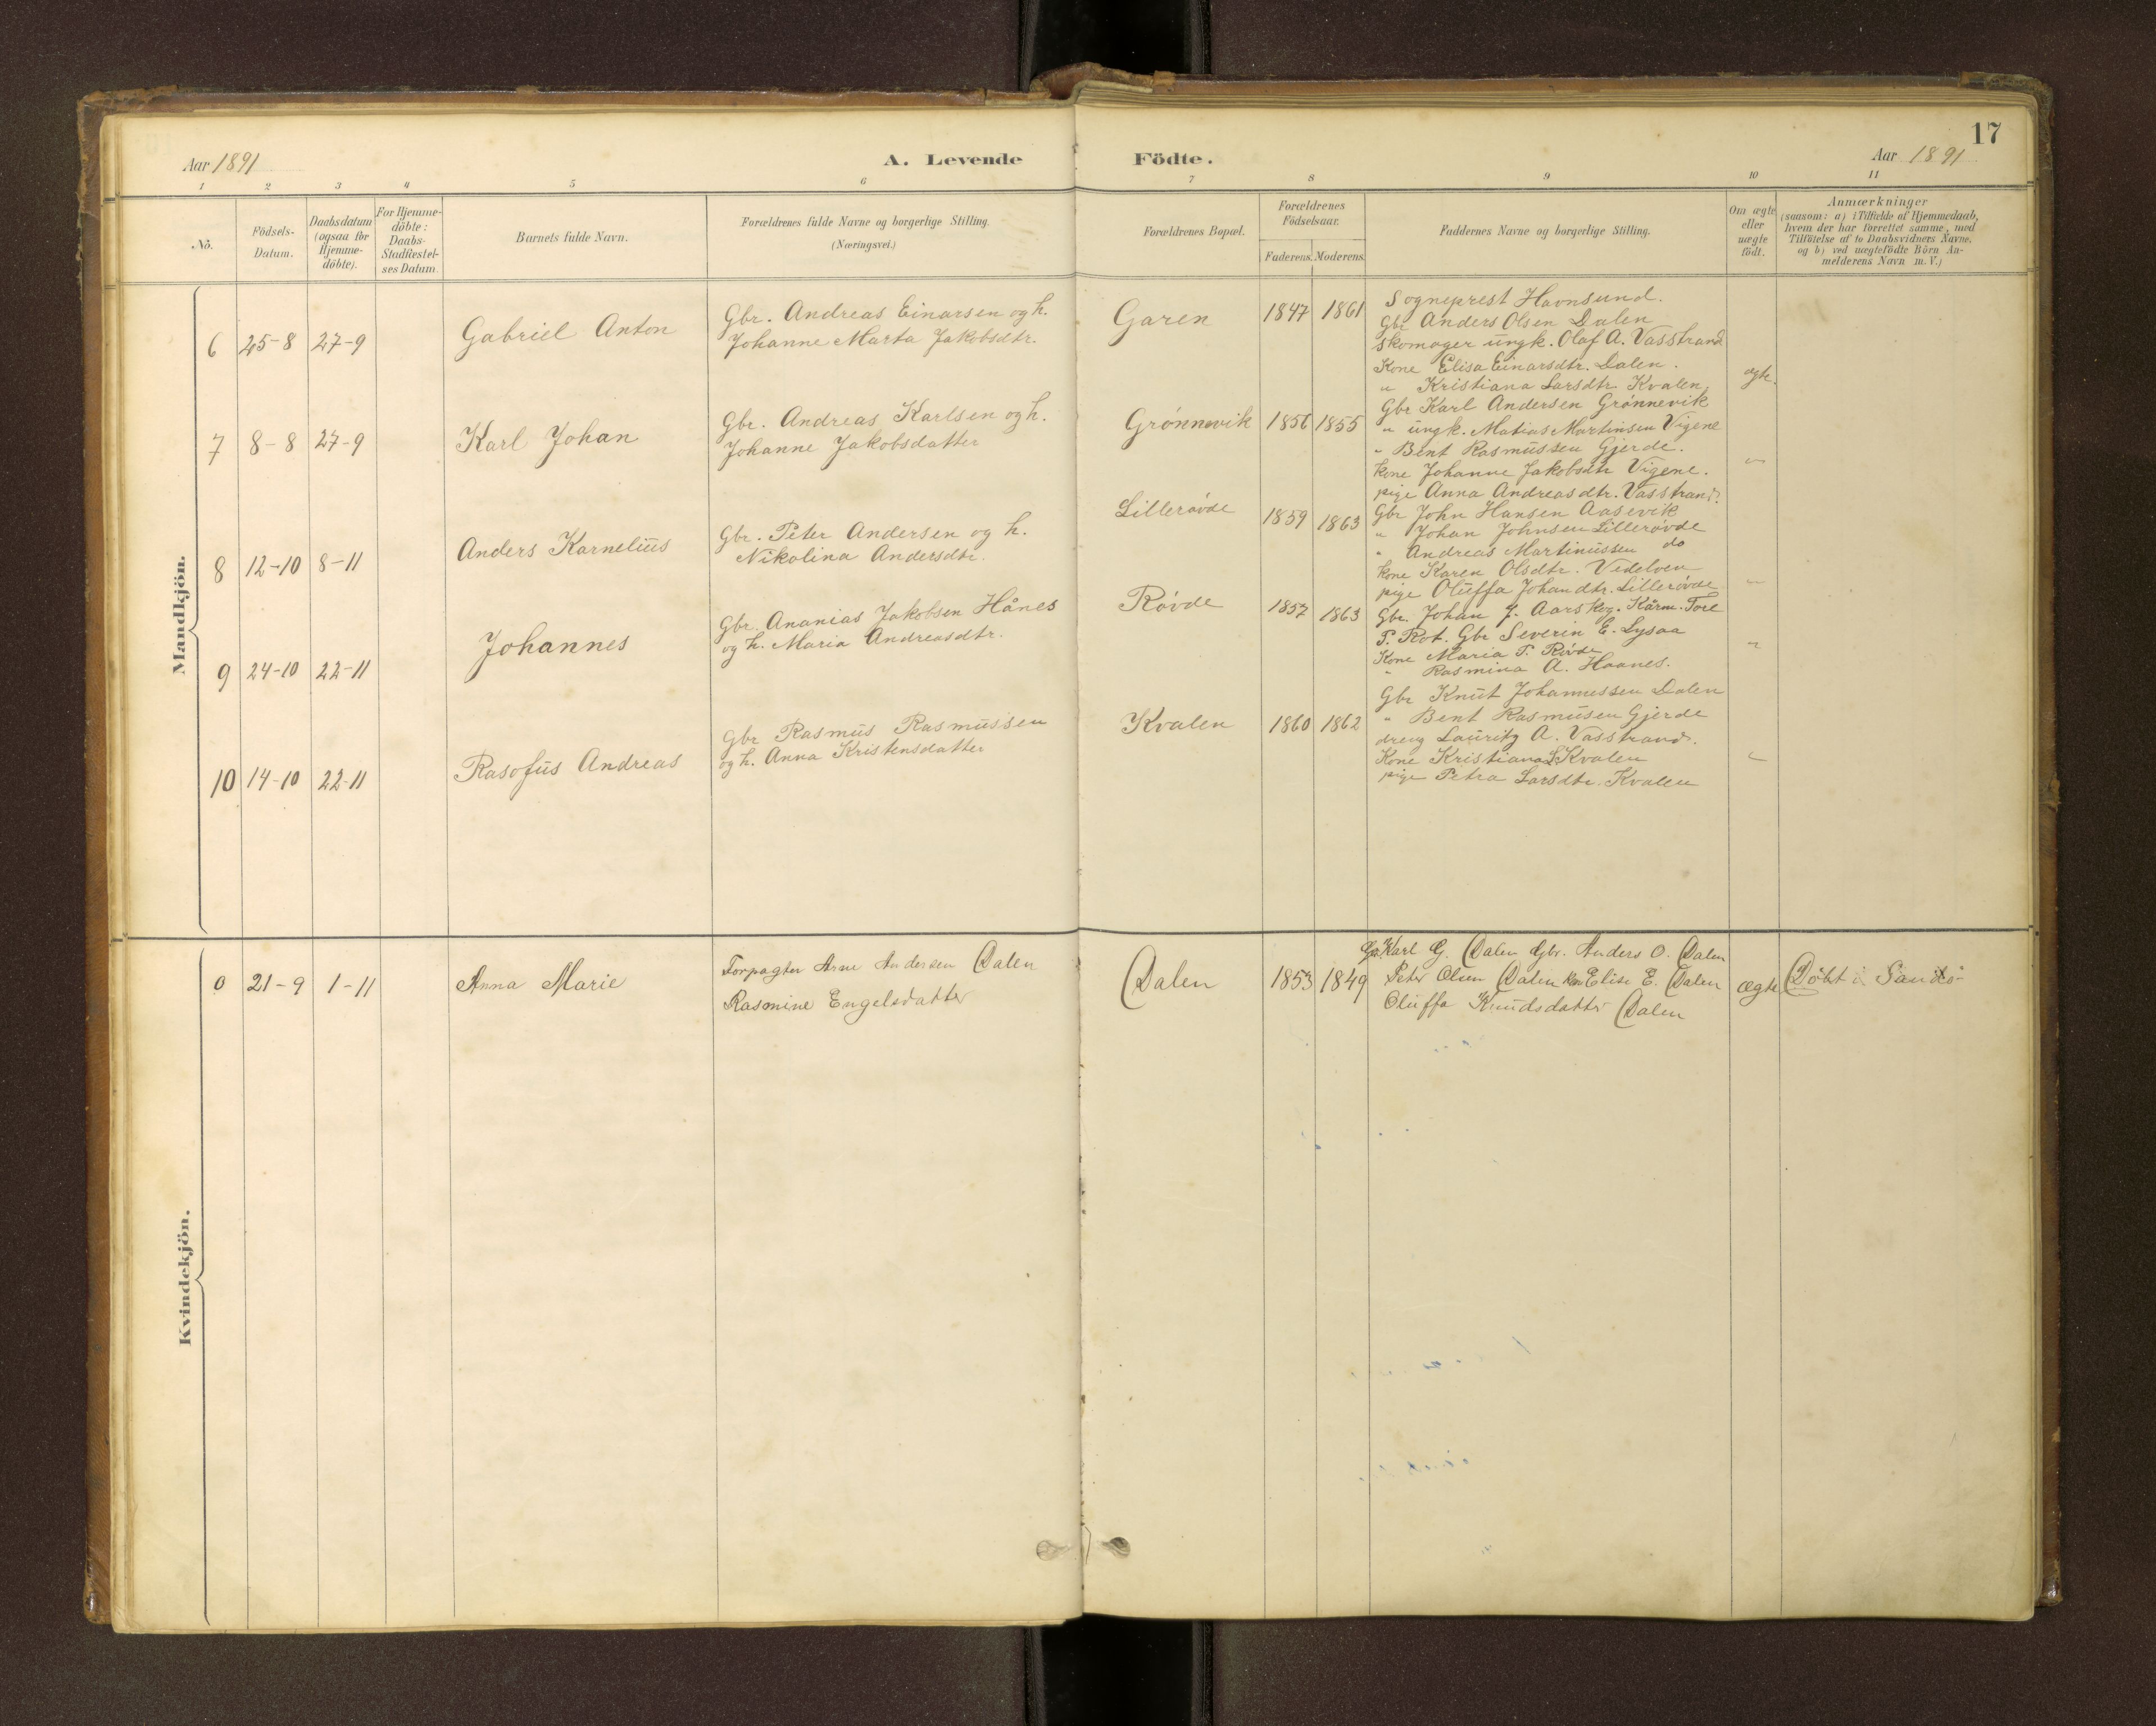 17
Aar 1891
A. Levende Födte.
Aar 1891
1 2 3 4 5 6 7 8 9 10 11
Nö.
Födsels-
Datum.
Daabsdatum
(ogsaa for
Hjemme-
döbte).
For Hjemme-
döbte:
Daabs-
Stadfæstel-
ses Datum
Barnets fulde Navn.
Forældrenes fulde Navne og borgerlige Stilling.
(Næringsvei.)
Forældrenes Bopæl.
Forældrenes
Födselsaar.
Faderens. Moderens.
Faddernes Navne og borgerlige Stilling.
Om ægte
eller
uægte
födt.
Anmærkninger
(saasom: a) i Tilfælde af Hjemmedaab,
hvem der har forrettet samme, med
Tilföielse af to Daabsvidners Navne,
og b) ved uægtefödte Börn An-
melderens Navn m. V.)
Mandkjön.
6 25-8 27-9
Gabriel Anton
Gbr. Andreas Einarsen og h.
Johanne Marta Jakobsdtr.
Garen
1847 1861
Sogneprest Havnsund.
Gbr Anders Olsen Dalen
Skomager ungk. Olaf A. Vasstrand
Kone Elisa Einarsdtr. Dalen.
" Kristiana Larsdtr. Kvalen.
ægte.
7 8-8 27-9
Karl Johan
Gbr. Andreas Karlsen og h.
Johanne Jakobsdatter
Grönnevik
1856 1855
Gbr Karl Andersen Grönnevik
" ungk. Matias Martinsen Vigene
" Bent Rasmussen Gjerde.
Kone Johanne Jakobsdtr Vigene.
pige Anna Andreasdtr. Vasstrand.
"
8 12-10 8-11
Anders Karnelius
Gbr. Peter Andersen og h.
Nikolina Andersdtr.
Lillerøvde
1859 1863
Gbr John Hansen Aasevik
" Johan Johnsen Lillerøvde
" Andreas Martinussen do
Kone Karen Olsdtr. Videlven
pige Oluffa Johandtr. Lillerøvde
"
9 24-10 22-11
Johannes
Gbr. Ananias Jakobsen Hånes
og h. Maria Andreasdtr.
Røvde
1857 1863
Gbr. Johan J. Aarskog. Kårm. Tore
P. Rot. Gbr Severin E. Lysaa
Kone Maria P. Røvde
" Rasmina A. Haanes.
"
10 14-10 22-11
Rasofus Andreas
Gbr Rasmus Rasmussen
og h. Anna Kristensdatter
Kvalen
1860 1862
Gbr Knut Johannessen Dalen
" Bent Rasmusen Gjerde
dreng Lauritz A. Vasstrand.
Kone Kristiana L Kvalen
pige Petra Larsdtr. Kvalen
"
Kvindekjön.
0 21-9 1-11
Anna Marie
Forpagter Arne Andersen Dalen
Rasmine Engelsdatter
Dalen
1853 1849
Gbr. Karl G. Dalen Gbr. Anders O. Dalen
Peter Olsen Dalen Kon Elise E. Dalen
Oluffa Knudsdatter Dalen
ægte
Döbt i Sandö